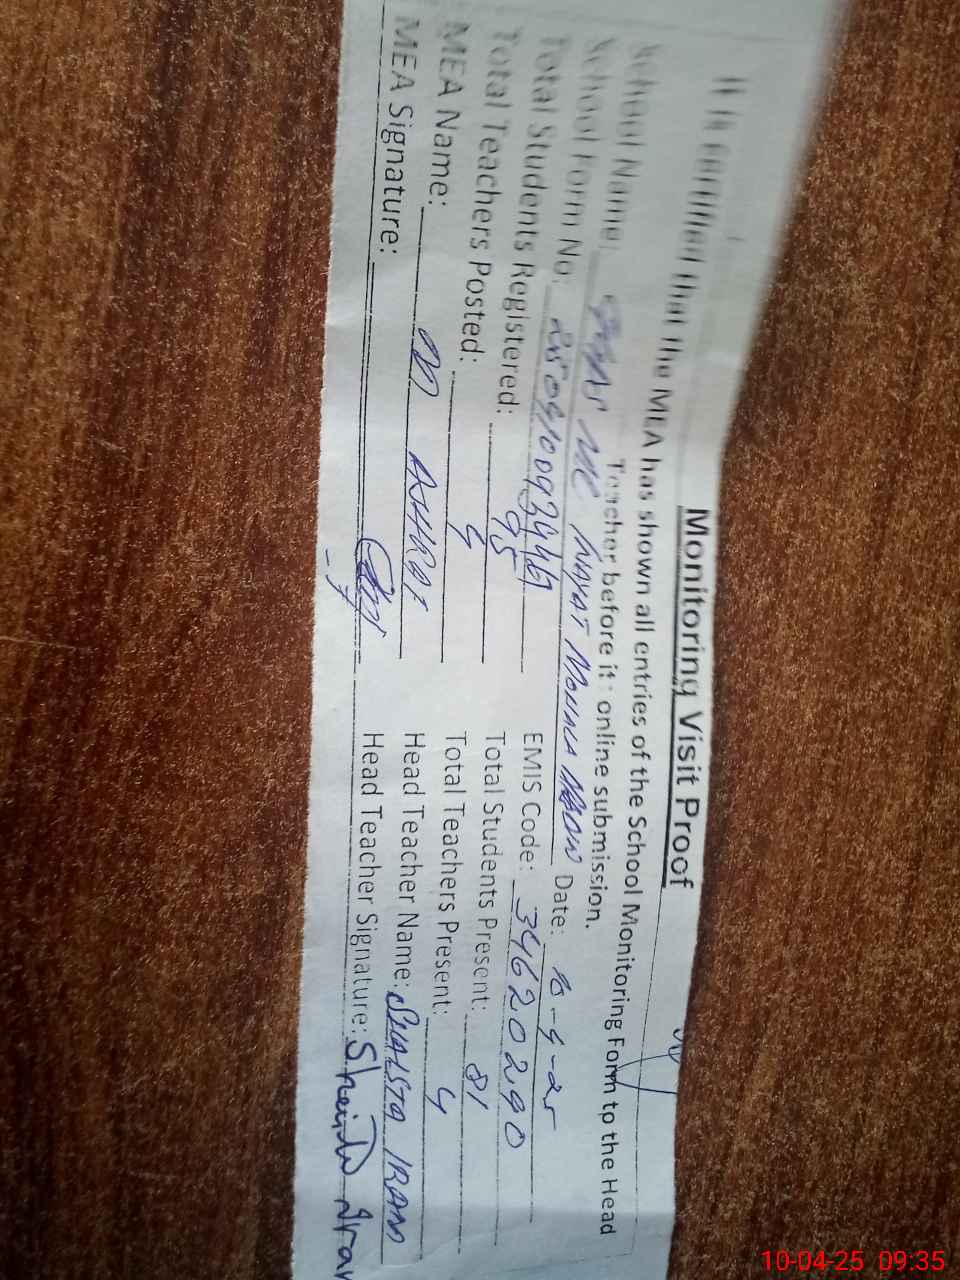 Monitoring Visit Proof
It is certified that the MEA has shown all entries of the School Monitoring Form to the Head
Teacher before it's online submission.
School Name: HAYAT Date: 10-4-25
School Form No: EMIS Code: 34620290
Total Students Registered: 95 Total Students Present: 81
Total Teachers Posted: 4 Total Teachers Present: 4
MEA Name: Head Teacher Name: SHAISTA IRAM
MEA Signature: Head Teacher Signature: Shaista Iram
10-04-25 09:35